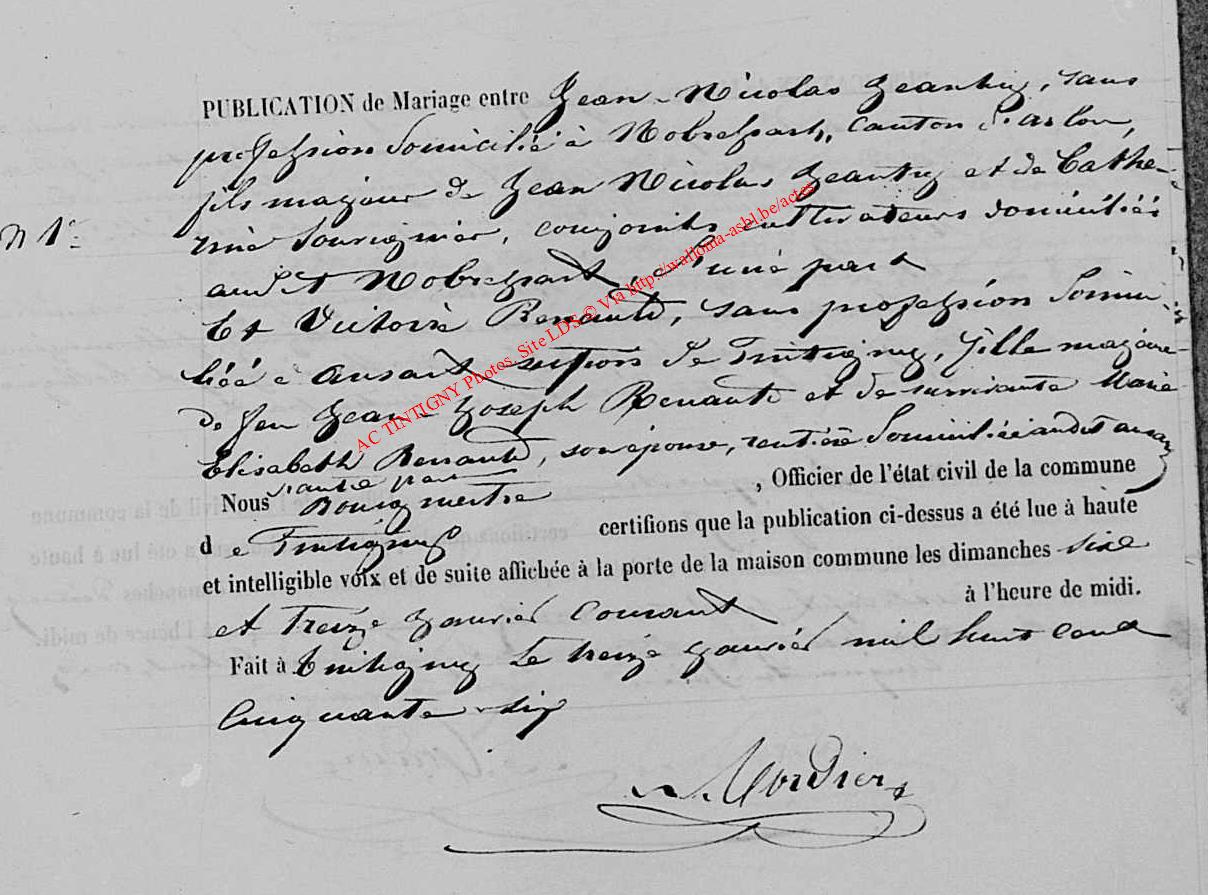 PUBLICATION de Mariage entre Jean-Nicolas Jeanty, sans
profession domicilié à Nobressart, canton d'arlon,
fils majeur de Jean Nicolas Jeanty et de Cathe-
n 1er
rine, conjoints cultivateurs domiciliés
audit Nobressart, d'une part
Et Victoire Renauld, sans profession domici-
liée à ansart section de Tintigny, fille majeure
de feu Jean-Joseph Renauld et de survivante Marie
Elisabeth Renauld, son épouse, rentière domiciliée audit ansart
d'autre part
Nous Bourgmestre , Officier de l'état civil de la commune
d e Tintigny certifions que la publication ci-dessus a été lue à haute
et intelligible voix et de suite affichée à la porte de la maison commune les dimanches six
et treize janvier courant à l'heure de midi.
Fait à Tintigny le treize janvier mil huit cent
cinquante-six
AC TINTIGNY Photos, Site LDS © Via http://wallonia-asbl.be/actes